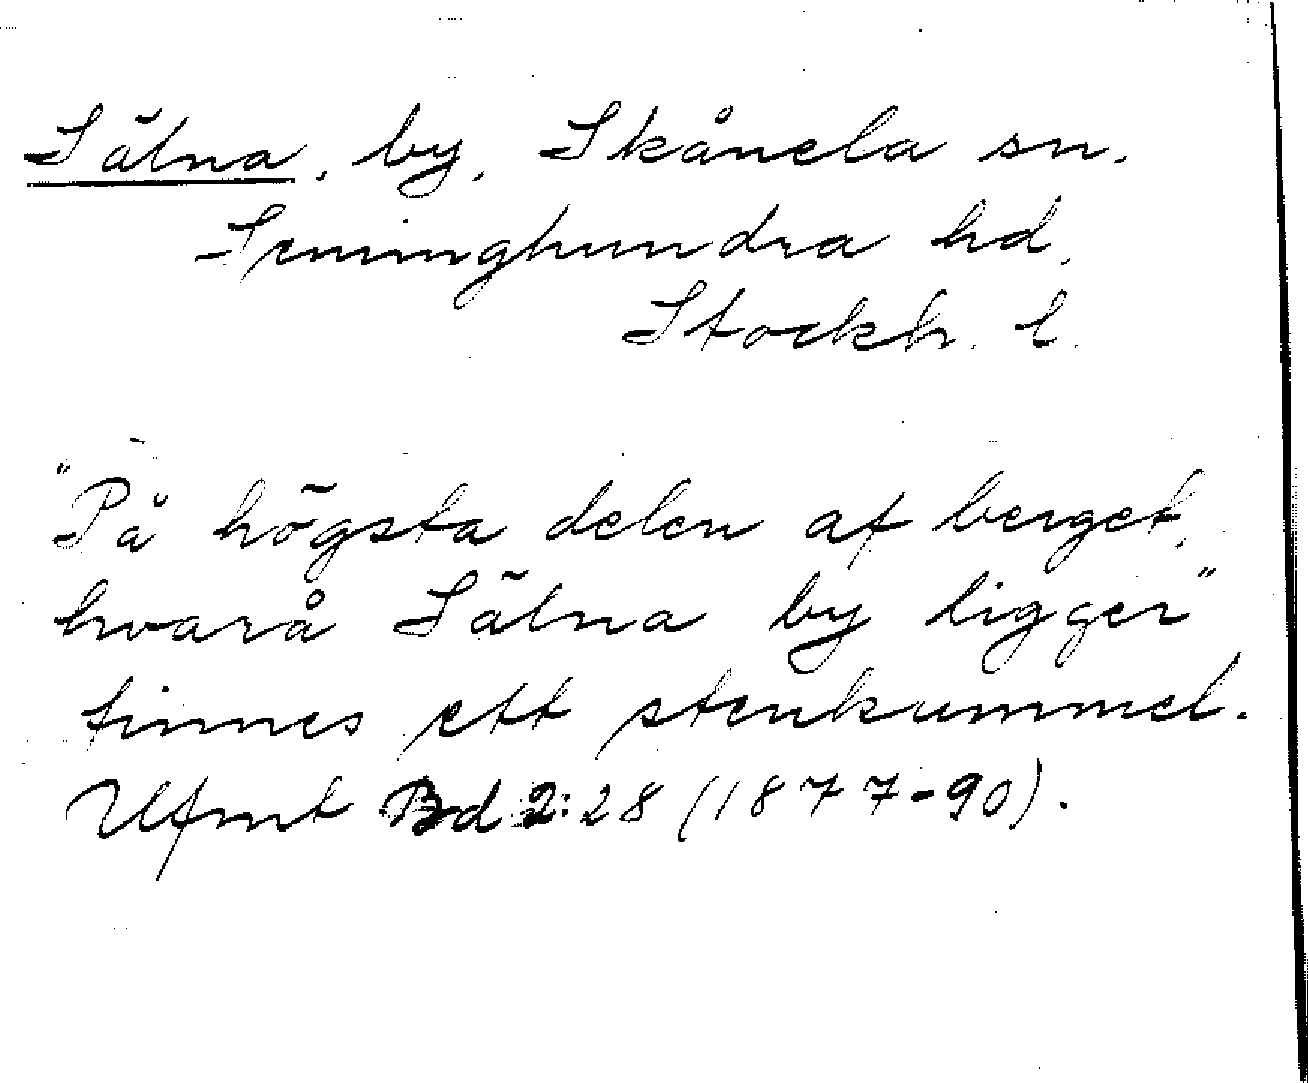 Sälna, by, Skånela sn.
Seminghundra hd,
Stockh. l.
"På högsta delen af berget,
hvarå Sälna by ligger"
finnes ett stenkummel.
Ufmt Bd 2:28 (1877-90).